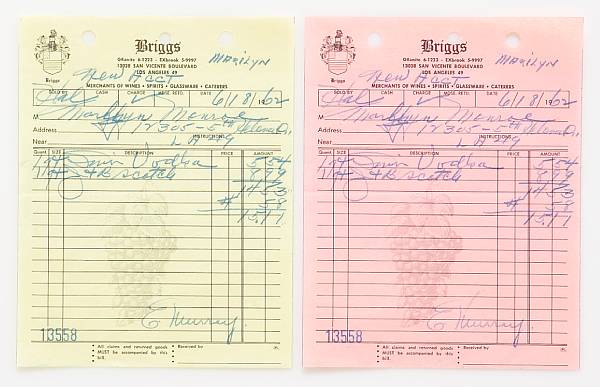 Briggs
Briggs
GRanite 6-1223 - EXbrook 5-9997
Marilyn
13038 SAN VICENTE BOULEVARD
LOS ANGELES 49
New Acct
MERCHANTS OF WINES • SPIRITS • GLASSWARE • CATERERS
SOLD BY CASH CHARGE MDSE. RETD. DATE
Hal 6/18/1962
M Marilyn Monroe
Address 12305-5th Helena Dr.
INSTRUCTIONS
Near LA 49
Quant. SIZE DESCRIPTION PRICE AMOUNT
Vodka 5.54
Scotch 8.99
14.53
58
15.11
E Murray.
13558
All claims and returned goods MUST be accompanied by this bill.
Received by
Briggs
Briggs
GRanite 6-1223 - EXbrook 5-9997
Marilyn
13038 SAN VICENTE BOULEVARD
LOS ANGELES 49
New Acct
MERCHANTS OF WINES • SPIRITS • GLASSWARE • CATERERS
SOLD BY CASH CHARGE MDSE. RETD. DATE
Hal 6/18/1962
M Marilyn Monroe
Address 12305-5th Helena Dr.
INSTRUCTIONS
Near LA 49
Quant. SIZE DESCRIPTION PRICE AMOUNT
Vodka 5.54
Scotch 8.99
14.53
58
15.11
E Murray.
13558
All claims and returned goods MUST be accompanied by this bill.
Received by